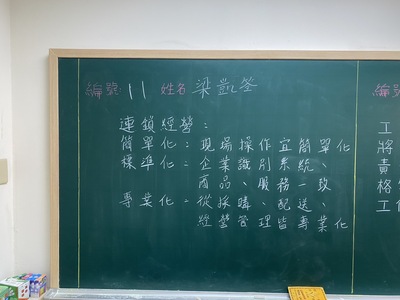 編號: 11 姓名 梁凱荃
連鎖經營:
簡單化:現場操作宜簡單化
標準化:企業識別系統、
商品、服務一致
專業化:從採購、配送、
經營管理皆專業化
編號
工
將
責
格
工作